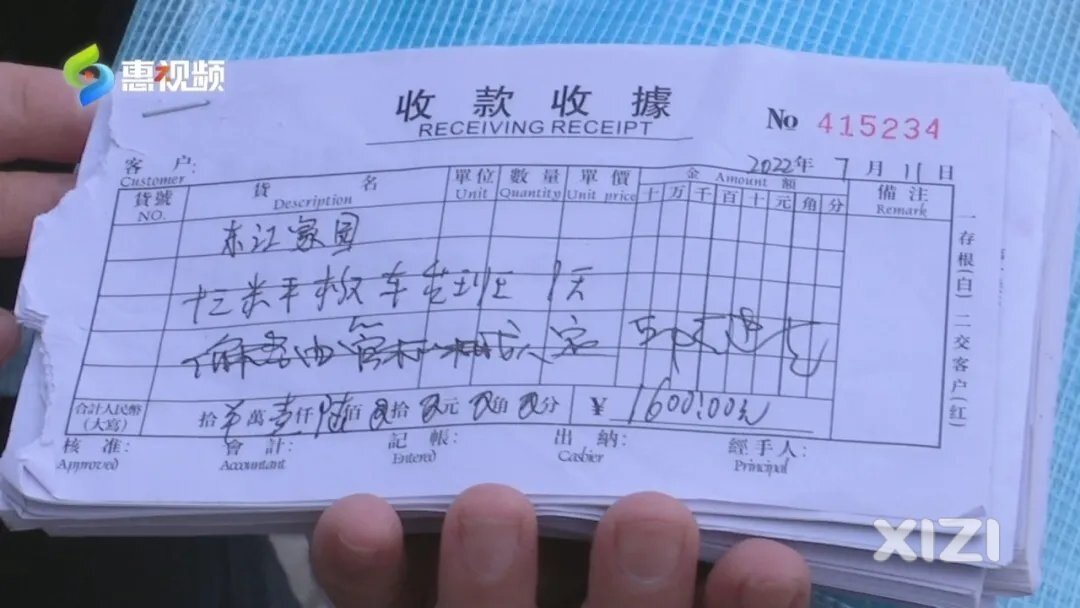 惠视频
收款收據
RECEIVING RECEIPT
No 415234
2022年 7月 11日
客 户:
Customer
貨號 NO.
貨 名 Description
單位 Unit
數量 Quantity
單價 Unit price
金 Amount 額
十 万 千 百 十 元 角 分
備注 Remark
东江家园
十三米平板车 1天
合計人民幣(大寫)
拾 萬 壹仟 陆佰 拾 元 角 分 ¥ 1600.00元
核 准: Approved
會 計: Accountant
記 帳: Entered
出 納: Cashier
經手人: Principal
一存根(白) 二交客户(红)
XIZI